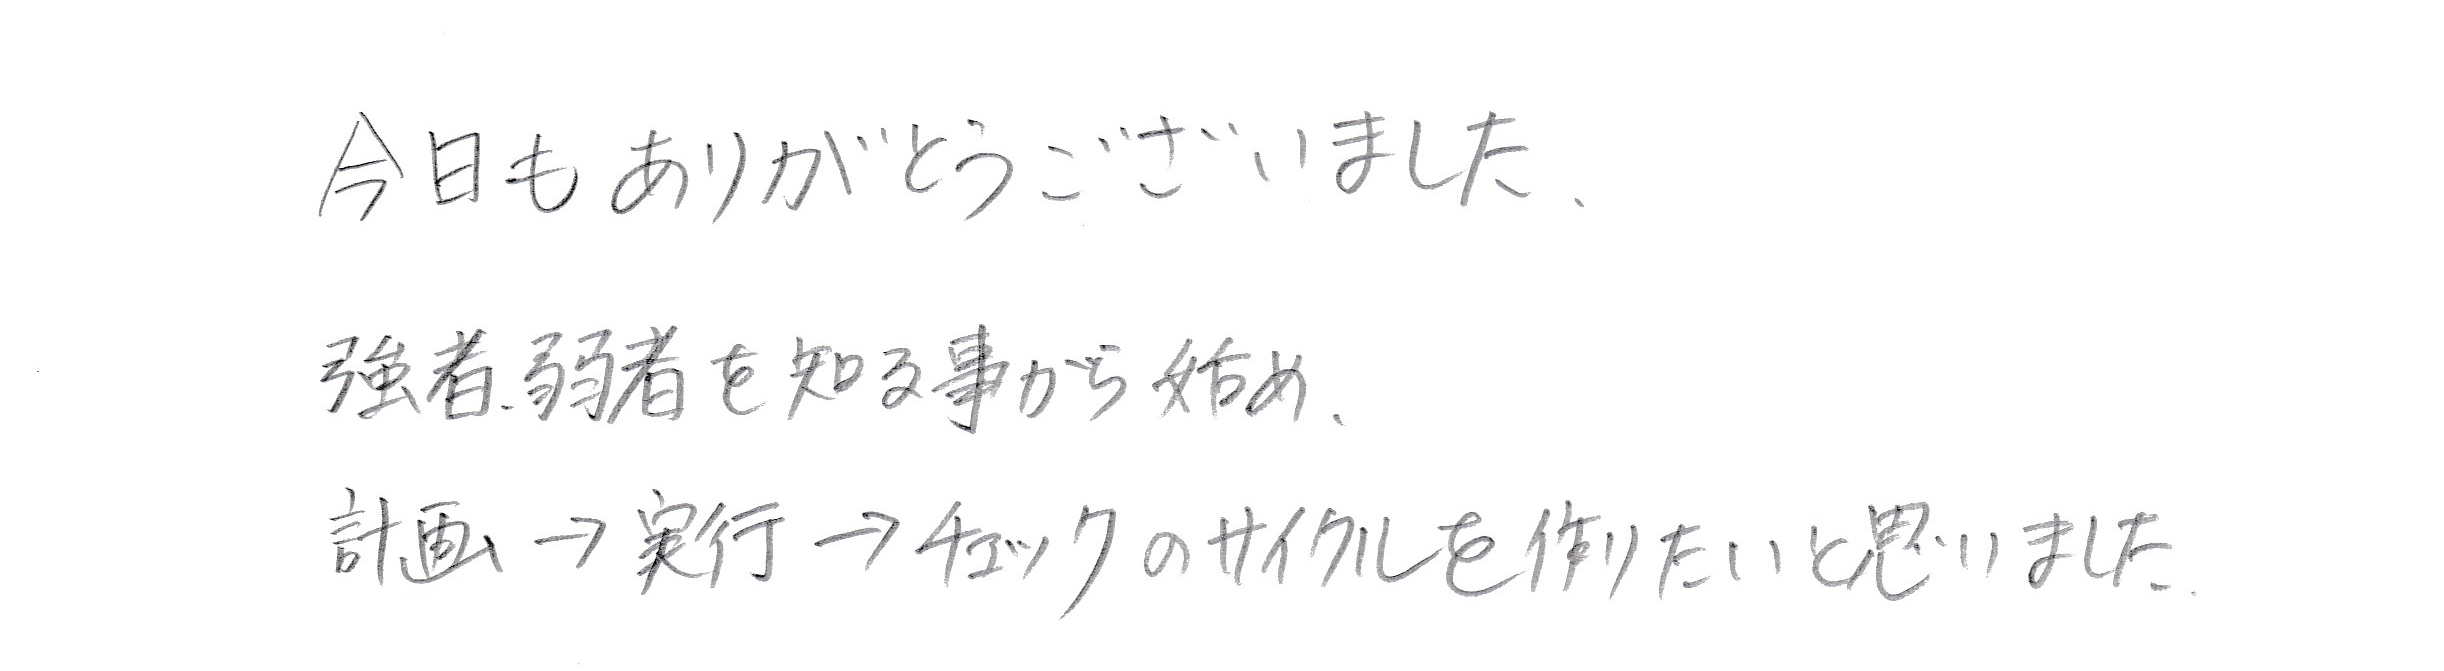 今日もありがとうございました、
強者、弱者を知る事から始め、
計画→実行→チェックのサイクルを作りたいと思いました.